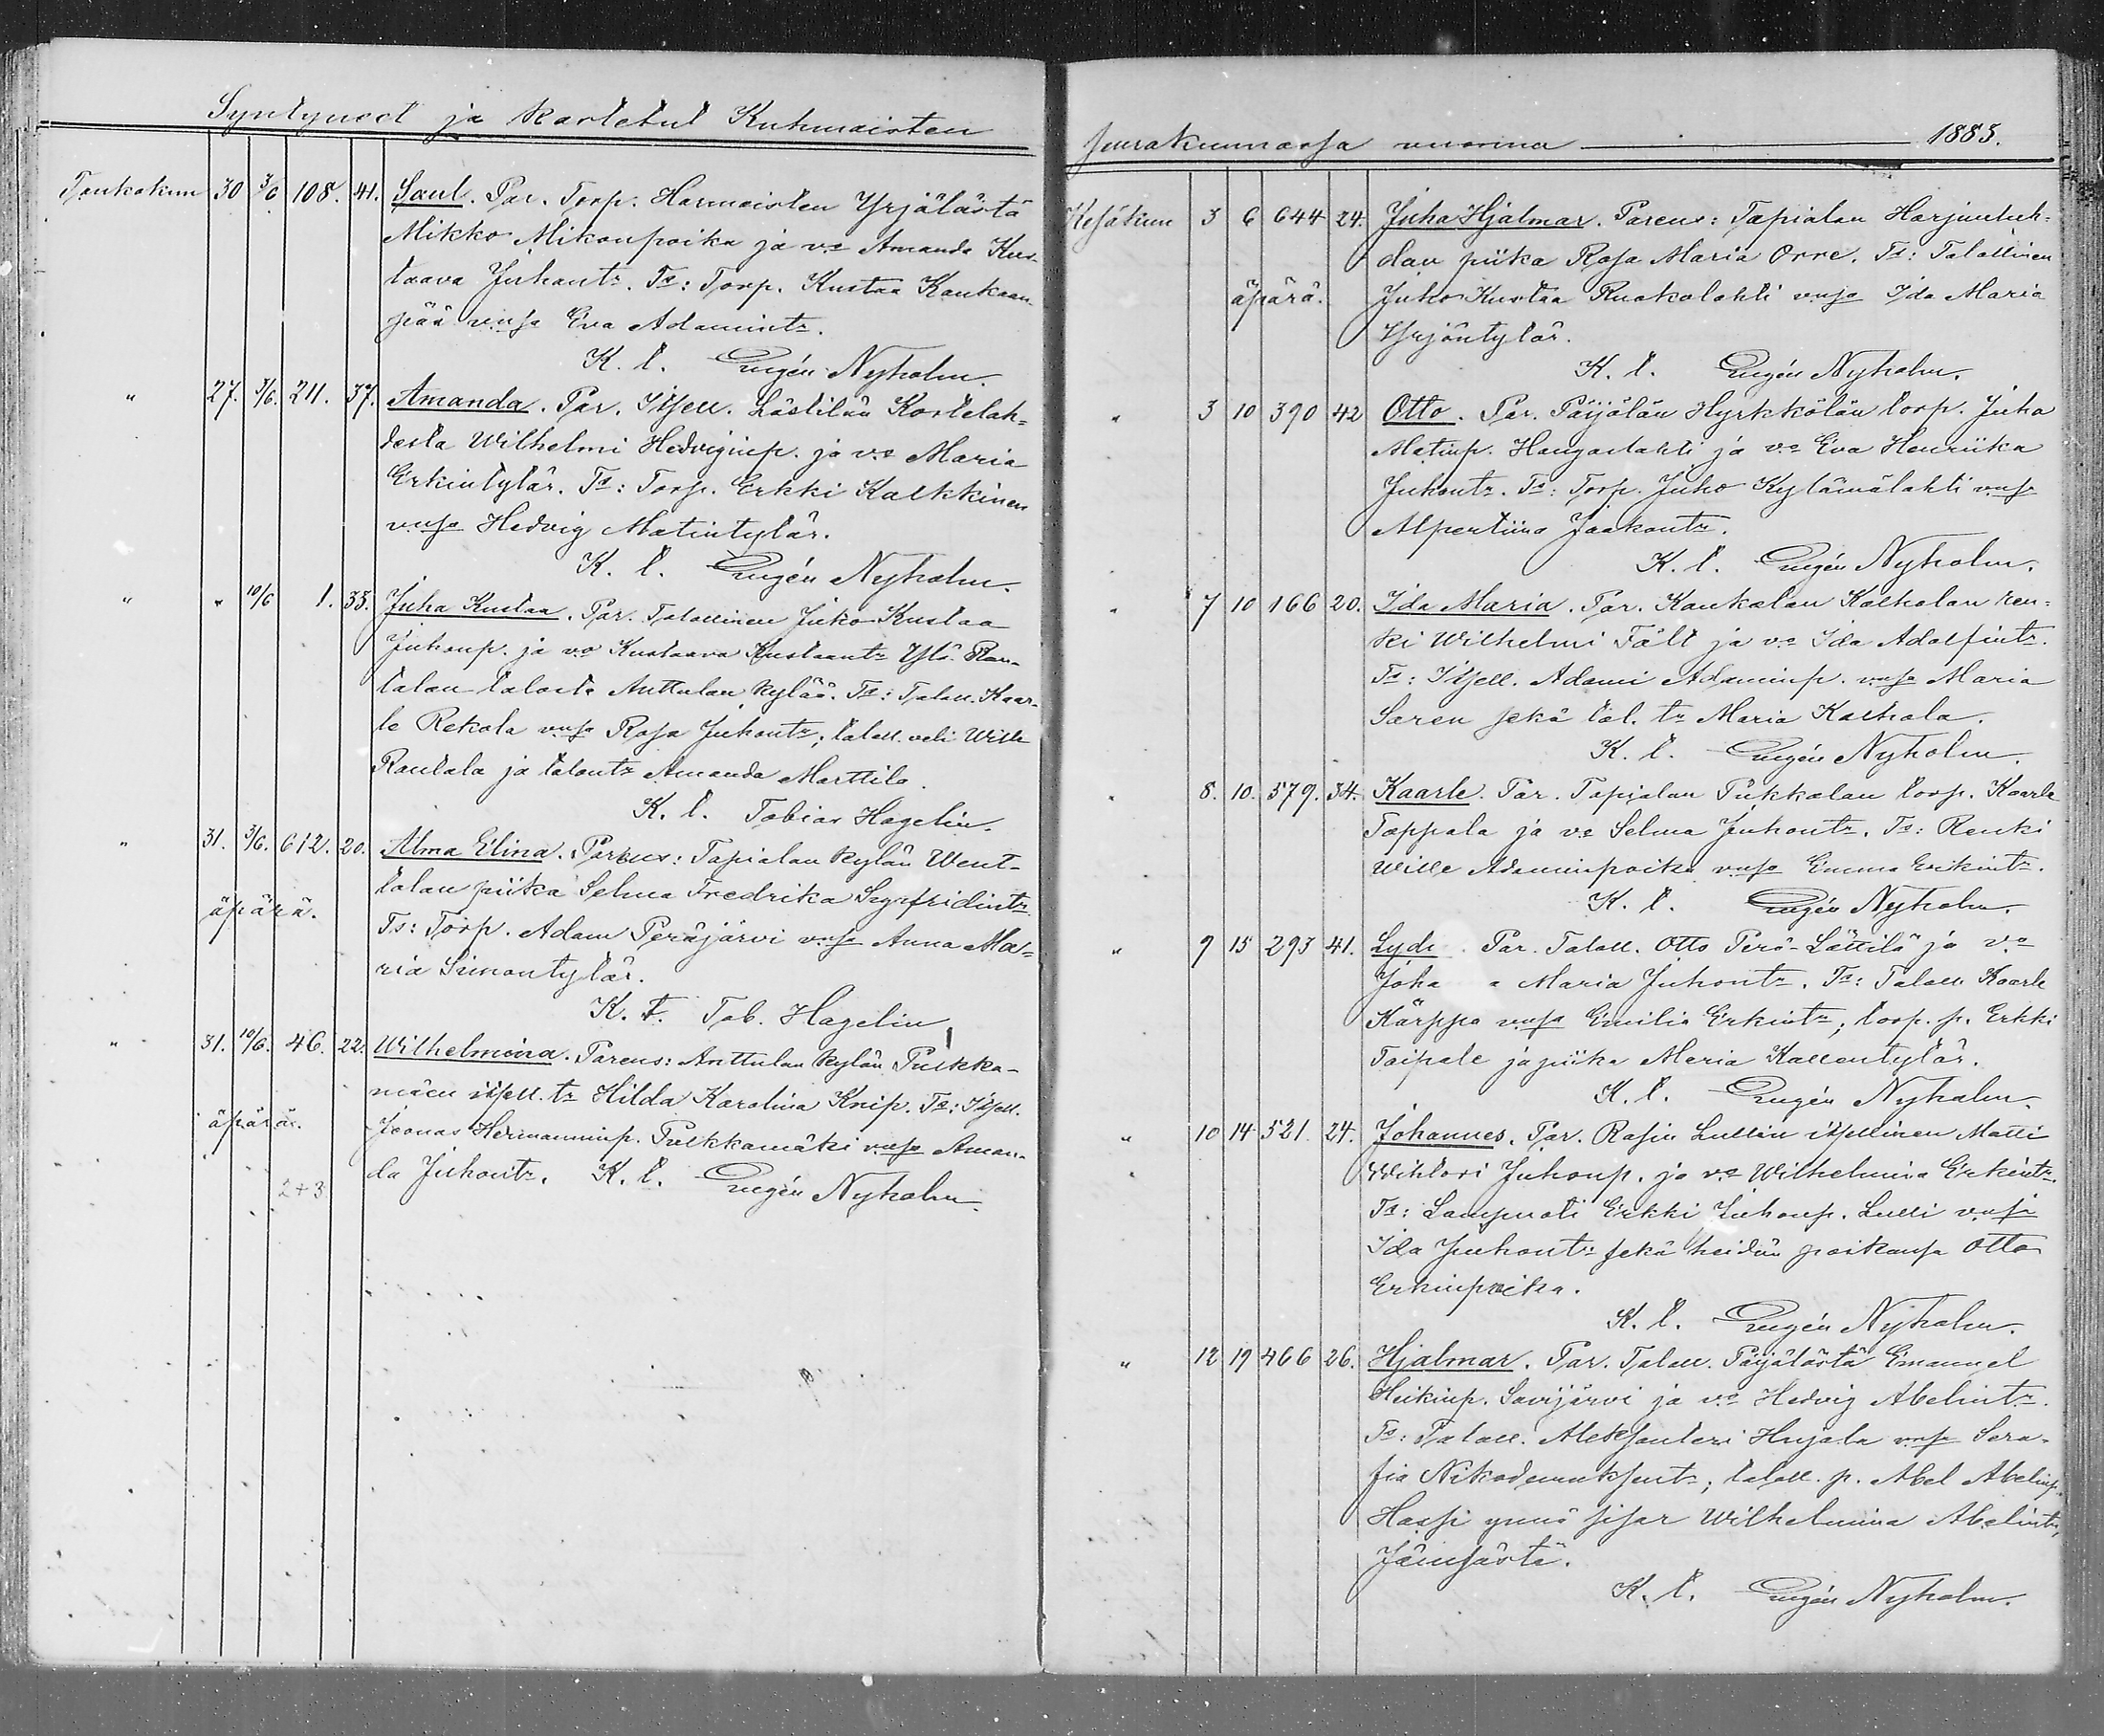 Syntyneet ja kastetut Kuhmoisten
Toukokuu 30 3/6 108. 41. Saul. Par. Torp. Harmoisten Yrjälästä
Mikko Mikonpoika ja vo Amanda Kus-
taava Juhontr. Ts: Torp. Kustaa Kankaan-
pää vmsa Eva Adamintr.
K. t. Eugén Nyholm.
" 27. 3/6. 211. 37. Amanda. Par. Itsell. Lästilän Kortelah-
desta Wilhelmi Hedviginp. ja vo Maria
Erkintytär. Ts: Torp. Erkki Kalkkinen
vmsa Hedvig Matintytär.
K. t. Eugén Nyholm.
" " 10/6 1. 33. Juha Kustaa. Par. Talollinen Juho Kustaa
Juhonp. ja vo Kustaava Kustaantr Ylä-Ran-
talan talosta Anttulan kylää. Ts: Talon. Kaar-
le Rekola vmsa Rosa Juhontr; taloll. veli Wille
Rantala ja talontr Amanda Marttila.
K. t. Tobias Hagelin.
" 31. 3/6. 612. 20. Alma Elina. Parens: Tapialan kylän Went-
talan piika Selma Fredrika Sigfridintr.
äpärä.
Ts: Torp. Adam Peräjärvi vmsa Anna Ma-
ria Simontytär.
K. t. Tob. Hagelin
" 31. 10/6. 46. 22. Wilhelmina. Parens: Anttulan kylän Pulkka-
mäen itsell. tr Hilda Karolina Knip. Ts: Itsell.
äpärä.
Joonas Hermanninp. Pulkkamäki vmsa Aman-
da Juhontr. K. t. Eugén Nyholm.
2+3
seurakunnassa vuonna 1885.
Kesäkuu 3 6 644 24. Juha Hjalmar. Parens: Tapialan Harjunluh-
dan piika Rosa Maria Orre. Ts: Talollinen
äpärä.
Juho Kustaa Ruokolahti vmsa Ida Maria
Yrjöntytär.
K. t. Eugén Nyholm.
" 3 10 390 42 Otto. Par. Päijälän Hyrkkölän torp. Juha
Matinp. Hangaslahti ja vo Eva Henriika
Juhontr. Ts: Torp. Juho Kylämälahti vmsa
Alpertiina Jaakontr.
K. t. Eugén Nyholm.
" 7 10 166 20. Ida Maria. Par. Kaukolan Kalholan ren-
ki Wilhelmi Fält ja vo Ida Adolfintr.
Ts: Itsell. Adami Adaminp. vmsa Maria
Saren sekä tal. tr Maria Kalhola.
K. t. Eugén Nyholm.
" 8. 10. 579. 34. Kaarle. Par. Tapialan Pukkalan torp. Kaarle
Tappala ja vo Selma Juhontr. Ts: Renki
Wille Adaminpoika vmsa Emma Erkintr.
K. t. Eugén Nyholm.
" 9 15 293 41. Lydi. Par. Taloll. Otto Perä-Lättilä ja vo
Joha a Maria Juhontr. Ts: Taloll Kaarle
Kärppä vmsa Emilia Erkintr, torp. p. Erkki
Taipale ja piika Maria Kallentytär.
K. t. Eugén Nyholm.
" 10 14 521. 24. Johannes. Par. Rasin Lullin itsellinen Matti
Wihtori Juhonp. ja vo Wilhelmina Erkintr.
Ts: Lampuoti Erkki Juhonp. Lulli vmsa
Ida Juhontr sekä heidän poikansa Otto
Erkinpoika.
K. t. Eugén Nyholm.
" 12 19 466 26. Hjalmar. Par. Taloll. Päijälästä Emanuel
Heikinp. Savijärvi ja vo Hedvig Abelintr.
Ts: Taloll. Aleksanteri Hujala vmsa Sera-
fia Nikodemuksentr; taloll. p. Abel Abelinp.
Hassi ynnä sisar Wilhelmina Abelintr,
Jämsästä.
K. t. Eugén Nyholm.